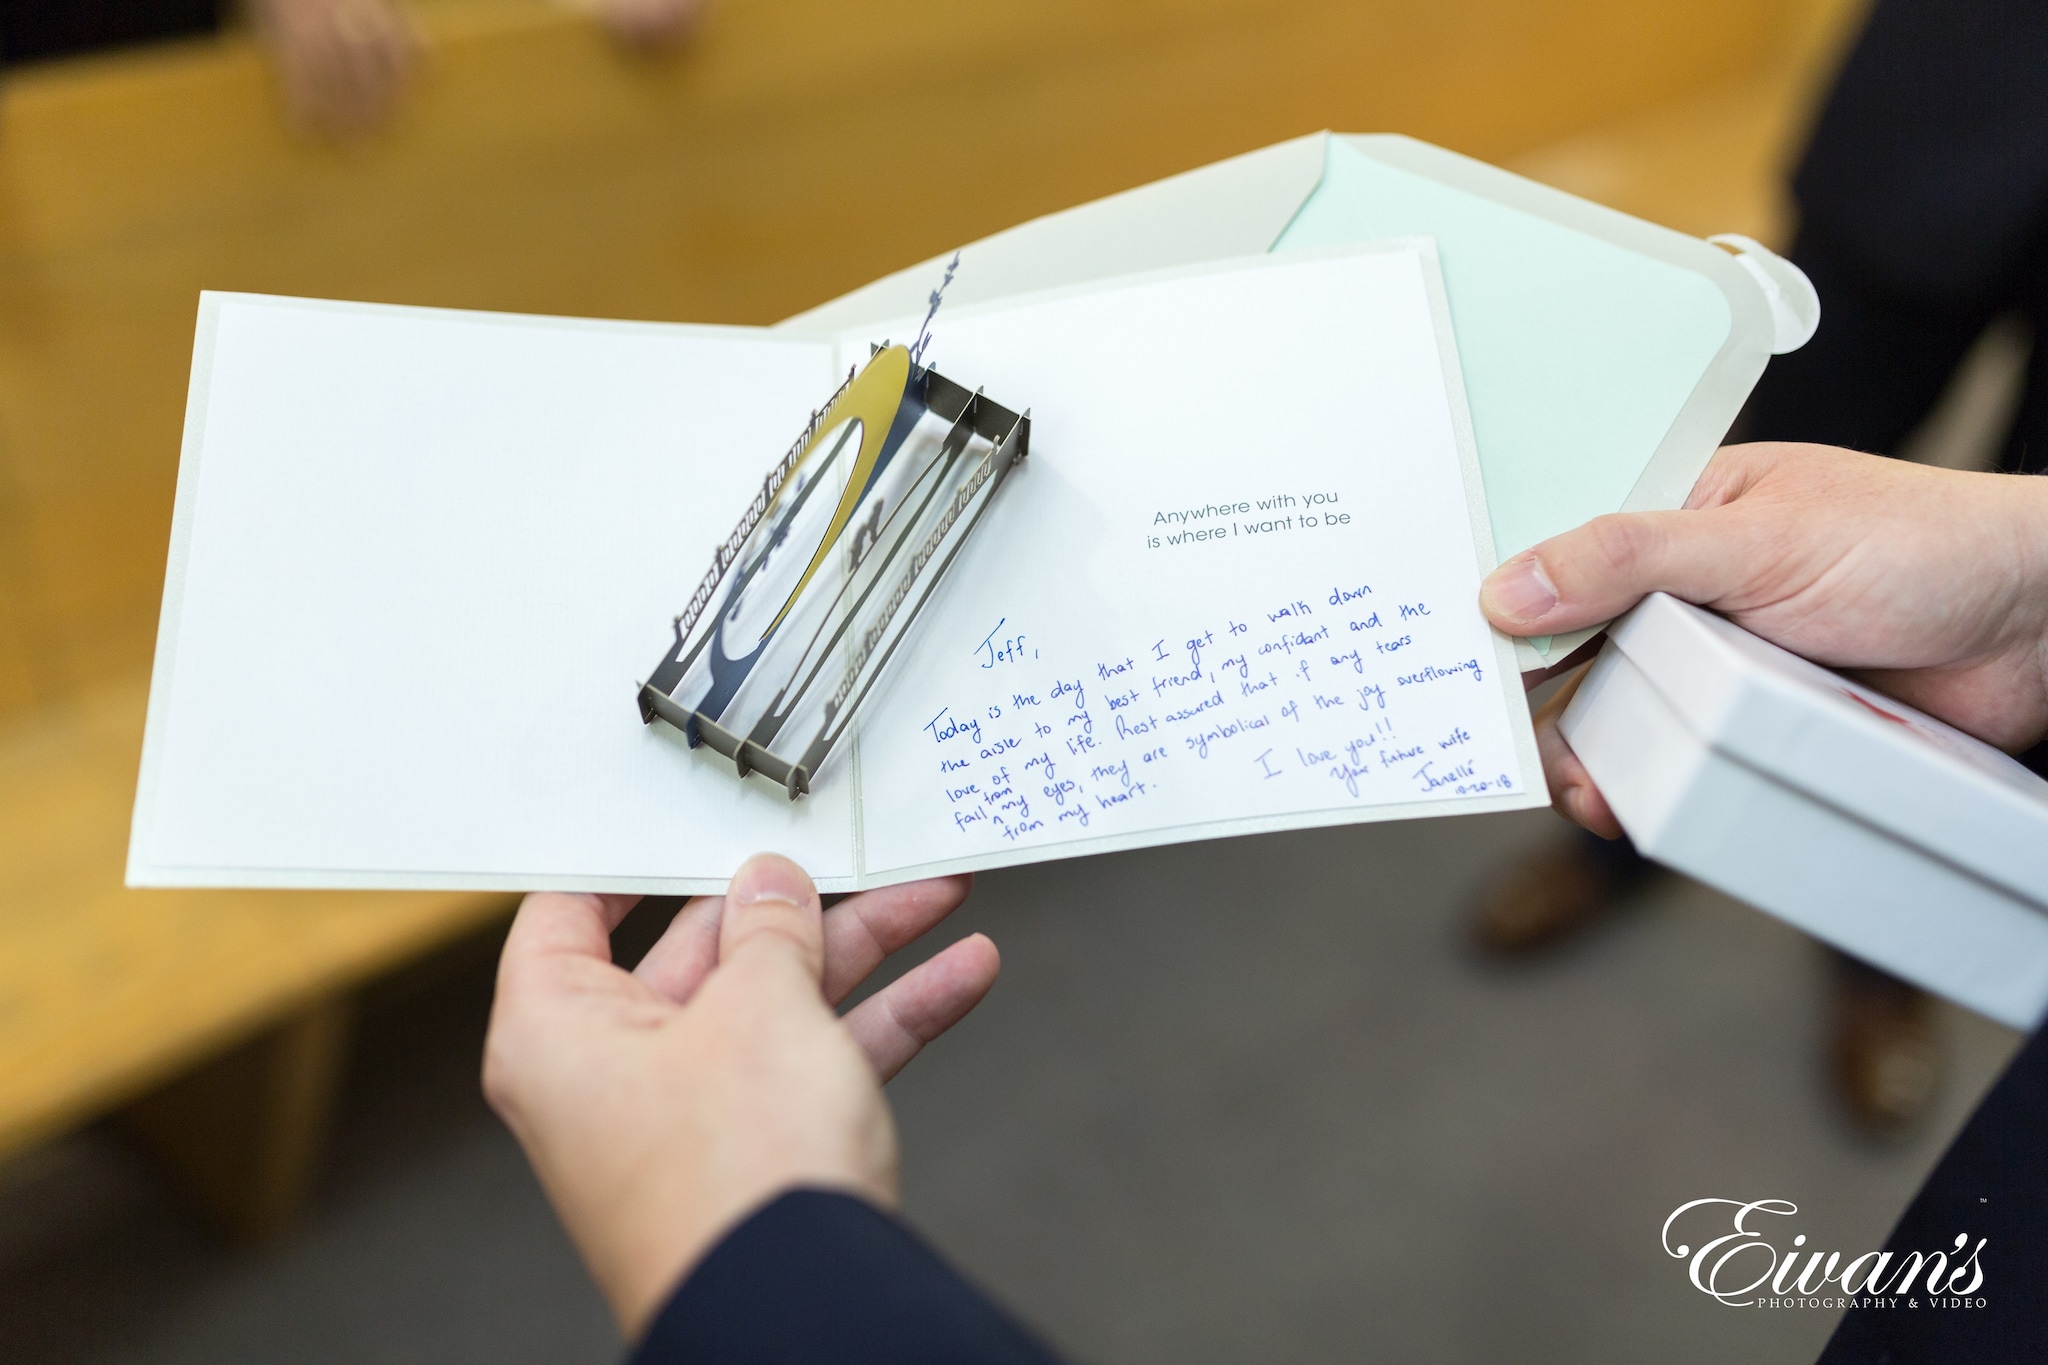 Anywhere with you
is where I want to be
Jeff,
Today is the day that I get to walk down
the aisle to my best friend, my confidant and the
love of my life. Rest assured that if any tears
fall from my eyes, they are symbolical of the joy overflowing
from my heart.
I love you!!
Your future wife
Janelle
10-20-18
Eivan's
PHOTOGRAPHY & VIDEO
TM